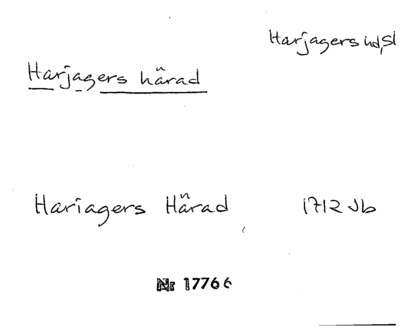 Harjagers hd, Sk
Harjagers härad
Hariagers Härad 1712 Jb
Nr 17766